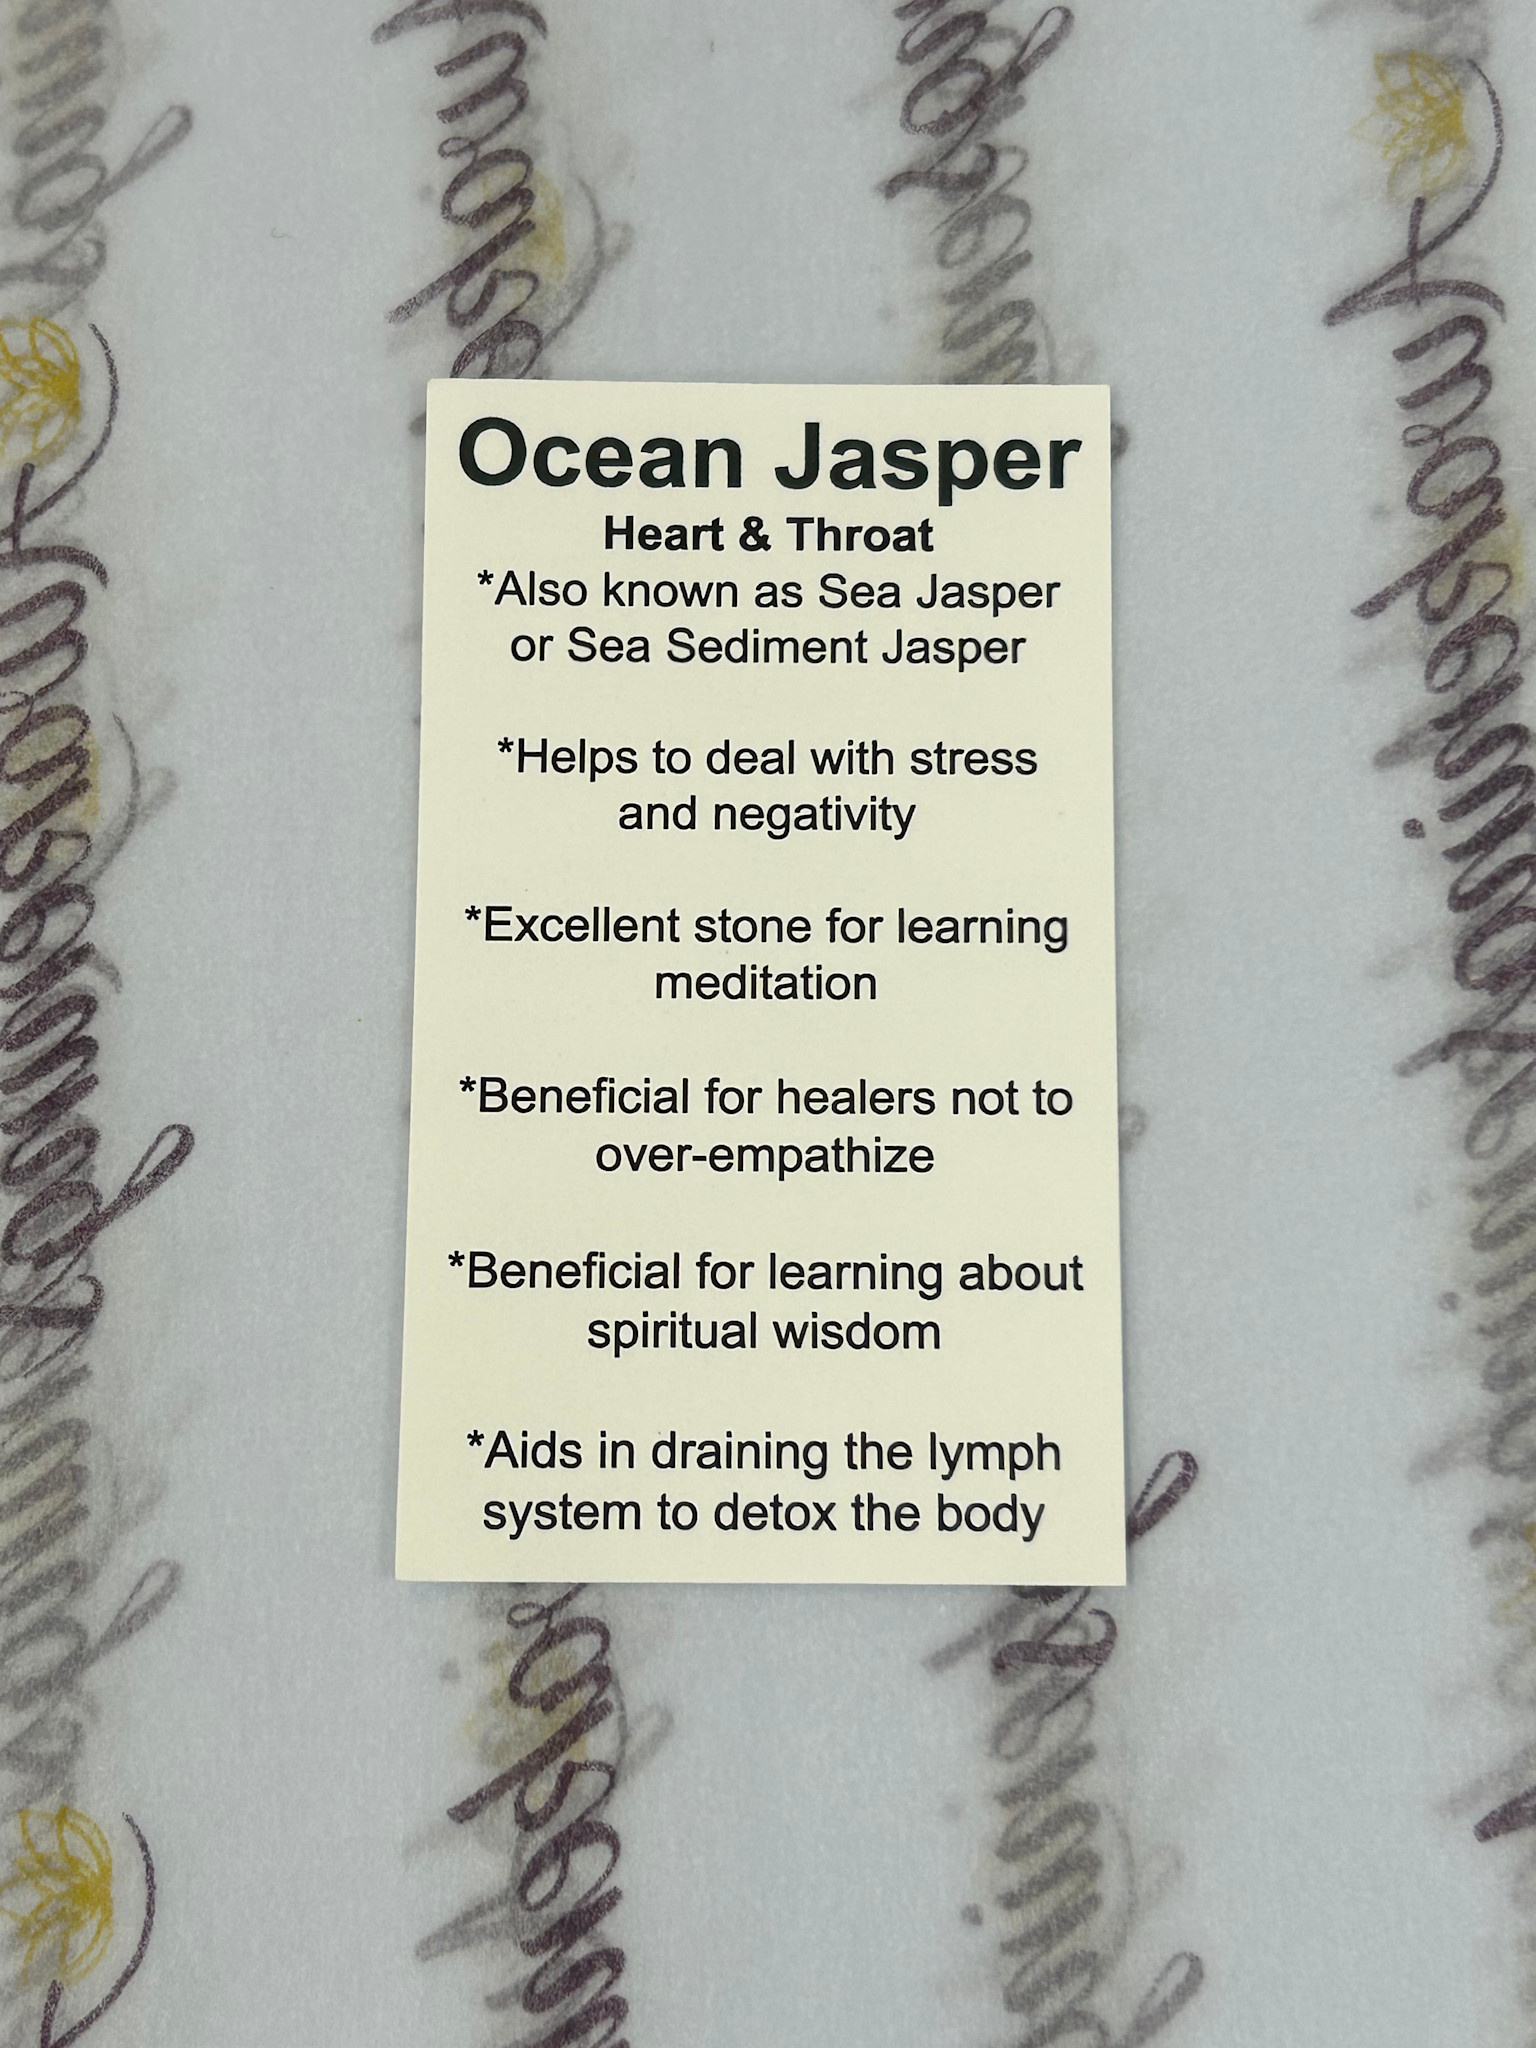 Ocean Jasper
Heart & Throat
*Also known as Sea Jasper
or Sea Sediment Jasper
*Helps to deal with stress
and negativity
*Excellent stone for learning
meditation
*Beneficial for healers not to
over-empathize
*Beneficial for learning about
spiritual wisdom
*Aids in draining the lymph
system to detox the body